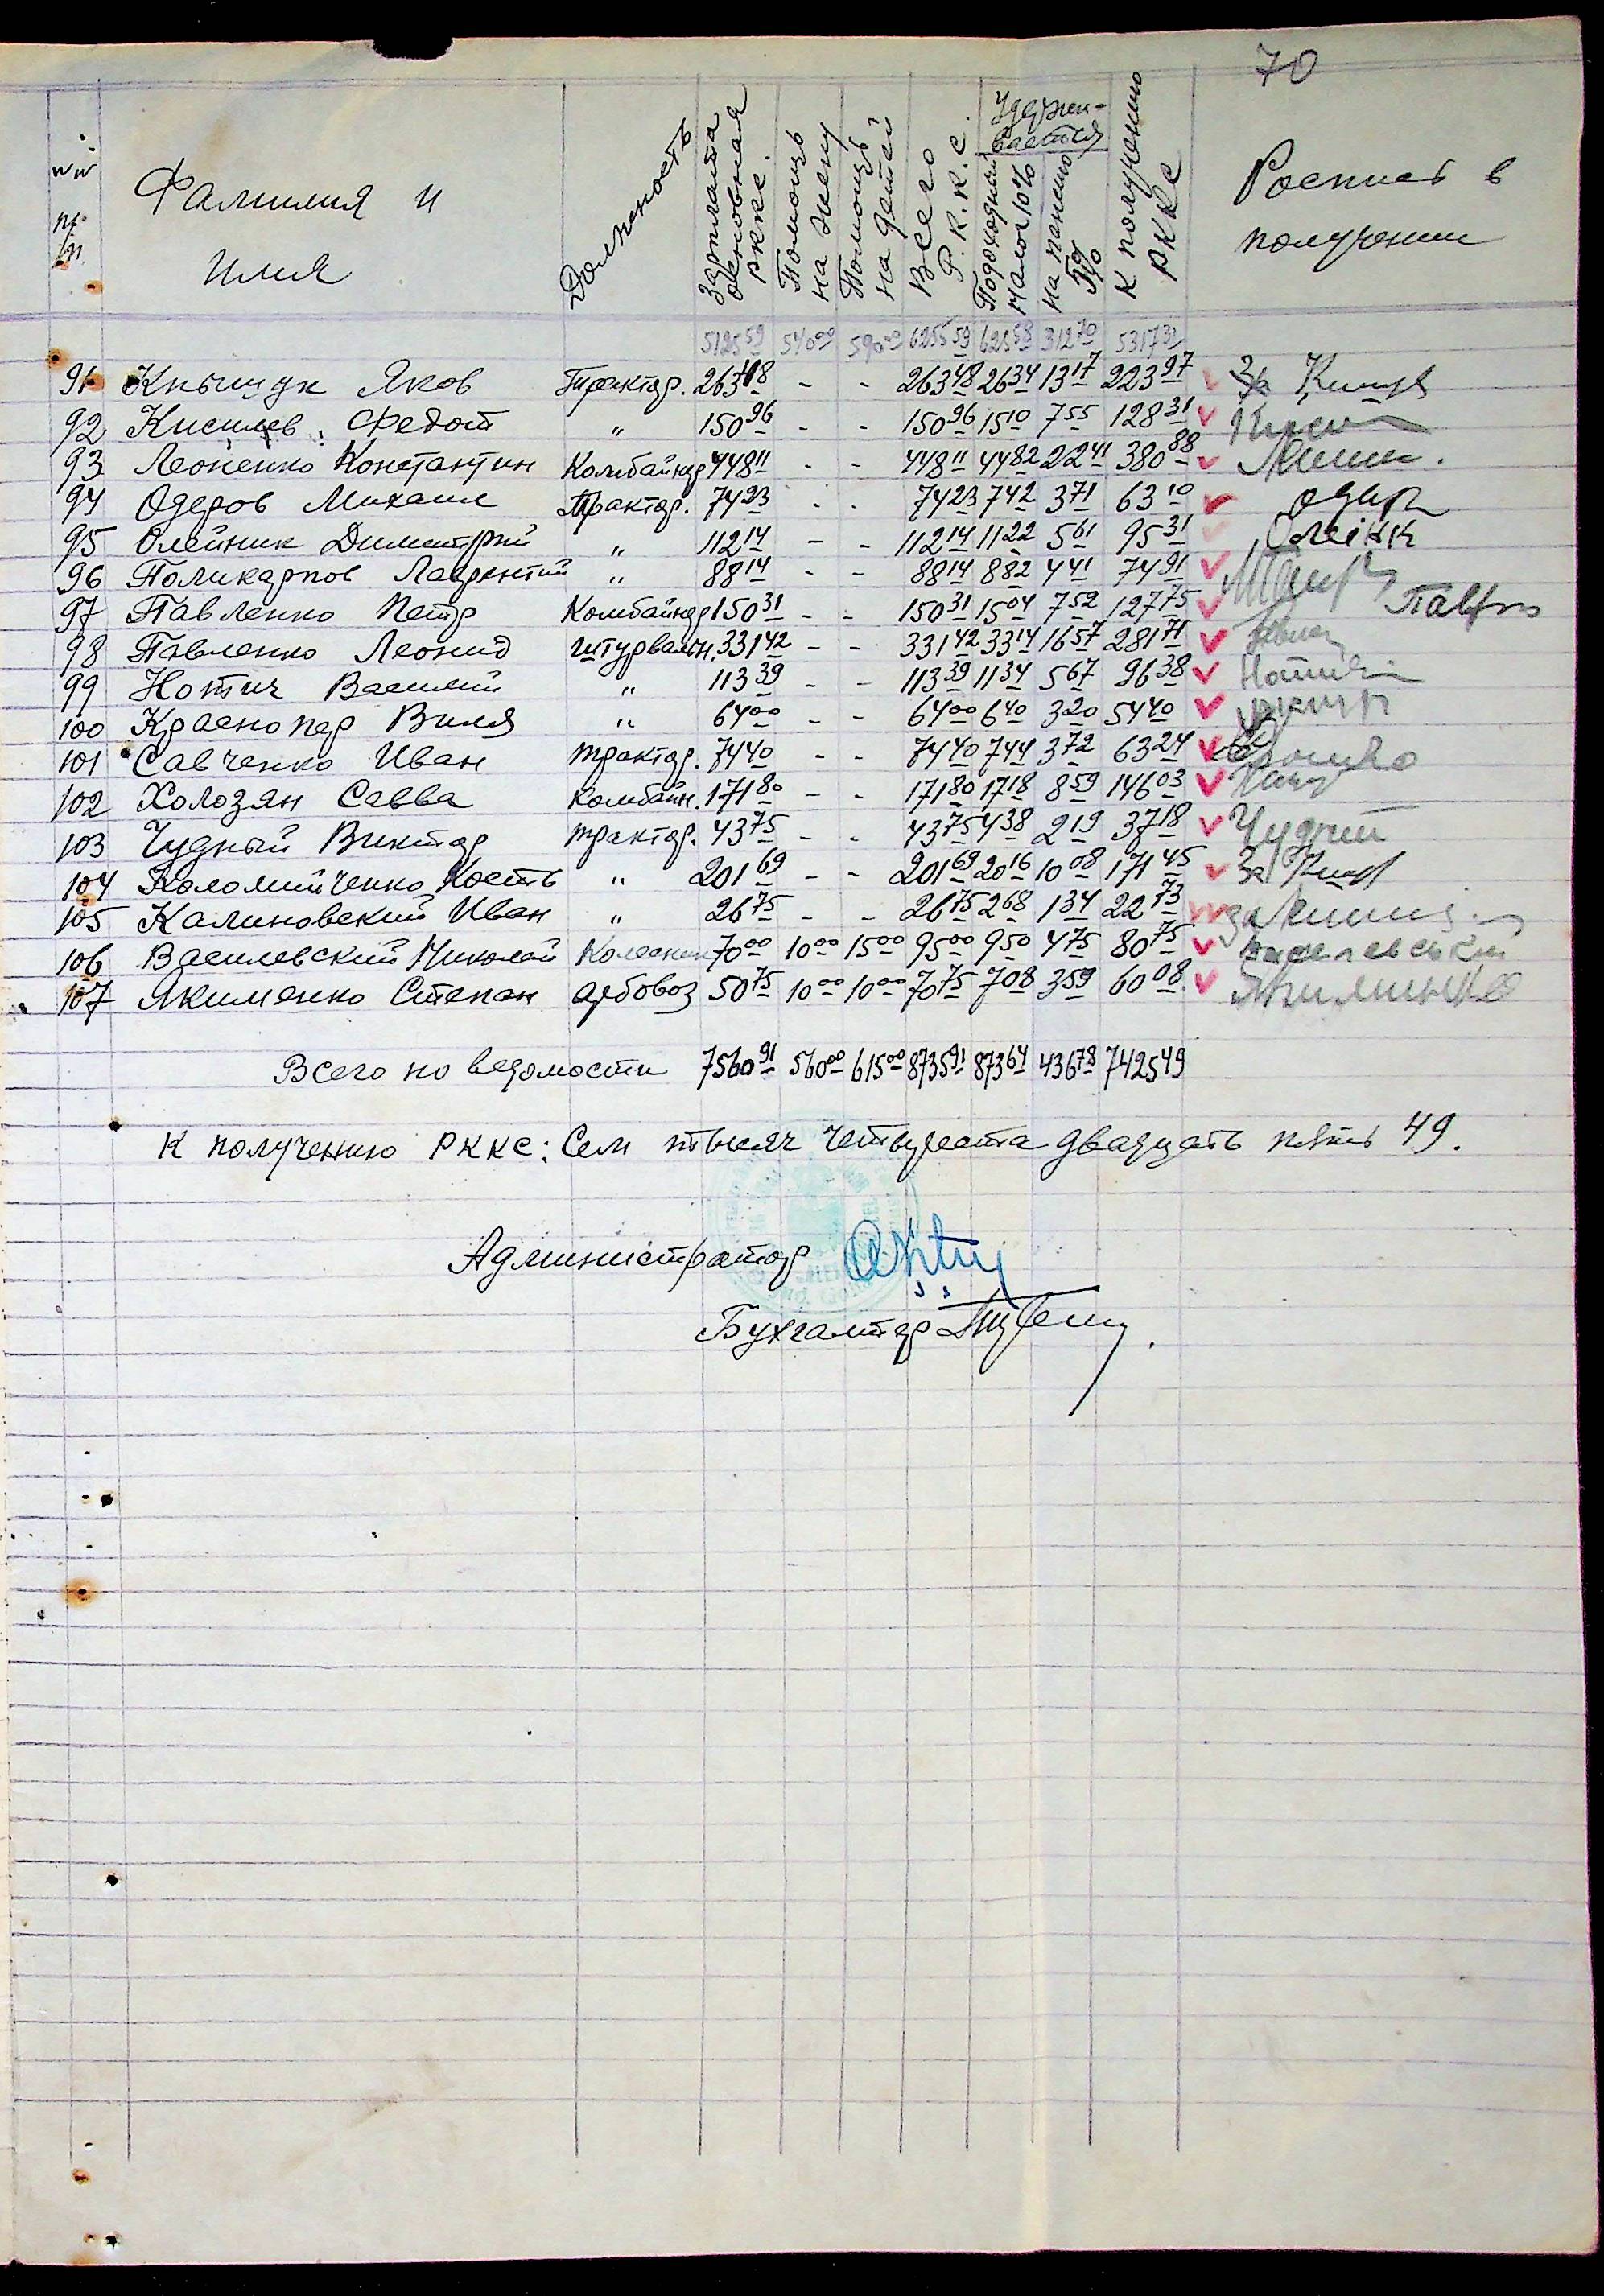 70
№№ п/п Фамилия и имя Должность Зарплата основная РККС. Помощь на жену Помощь на детей Всего Р.К.К.С. Удерживается Подоходный налог 10% на пенсию 5% К получению РККС Роспись в получении
5125 59 540 00 590 00 6255 59 625 58 312 70 5317 31
91 Кныщук Яков Трактор. 263 48 - - 263 48 26 34 13 17 223 97 За
92 Киселев Федот " 150 96 - - 150 96 15 10 7 55 128 31
93 Леоненко Константин Комбайнер 448 11 - - 448 11 44 82 22 41 380 88
94 Одеров Михаил Трактор. 74 23 - - 74 23 7 42 3 71 63 10
95 Олейник Димитрий " 112 14 - - 112 14 11 22 5 61 95 31 Олеiнк
96 Поликарпов Лаврентий " 88 14 - - 88 14 8 82 4 41 74 91
97 Павленко Петр Комбайнер 150 31 - - 150 31 15 04 7 52 127 75
98 Павленко Леонид штурвальн. 331 42 - - 331 42 33 14 16 57 281 71
99 Нотич Василий " 113 39 - - 113 39 11 34 5 67 96 38
100 Краснопер Виля " 64 00 - - 64 00 6 40 3 20 54 40
101 Савченко Иван трактор. 74 40 - - 74 40 7 44 3 72 63 24
102 Холозян Савва комбайн. 171 80 - - 171 80 17 18 8 59 146 03
103 Чудный Виктор трактор. 43 75 - - 43 75 4 38 2 19 37 18 Чудний
104 Коломийченко Кость " 201 69 - - 201 69 20 16 10 08 171 45 За
105 Калиновский Иван " 26 75 - - 26 75 2 68 1 34 22 73 за
106 Василевский Николай Колесник 70 00 10 00 15 00 95 00 9 50 4 75 80 75
107 Якименко Степан арбовоз 50 75 10 00 10 00 70 75 7 08 3 59 60 08
Всего по ведомости 7560 91 560 00 615 00 8735 91 873 64 436 78 7425 49
К получению РККС: Сем тысяч четыреста двадцать пять 49.
Администратор
Бухгалтер